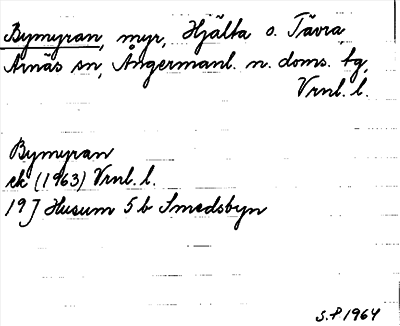 Bymyran, myr, Hjälta o. Tävra
Arnäs sn, Ångermanl. n. doms. tg,
Vrnl. l.
Bymyran
ek (1963) Vrnl. l.
19 J Husum 5 b Smedsbyn
S.P 1964